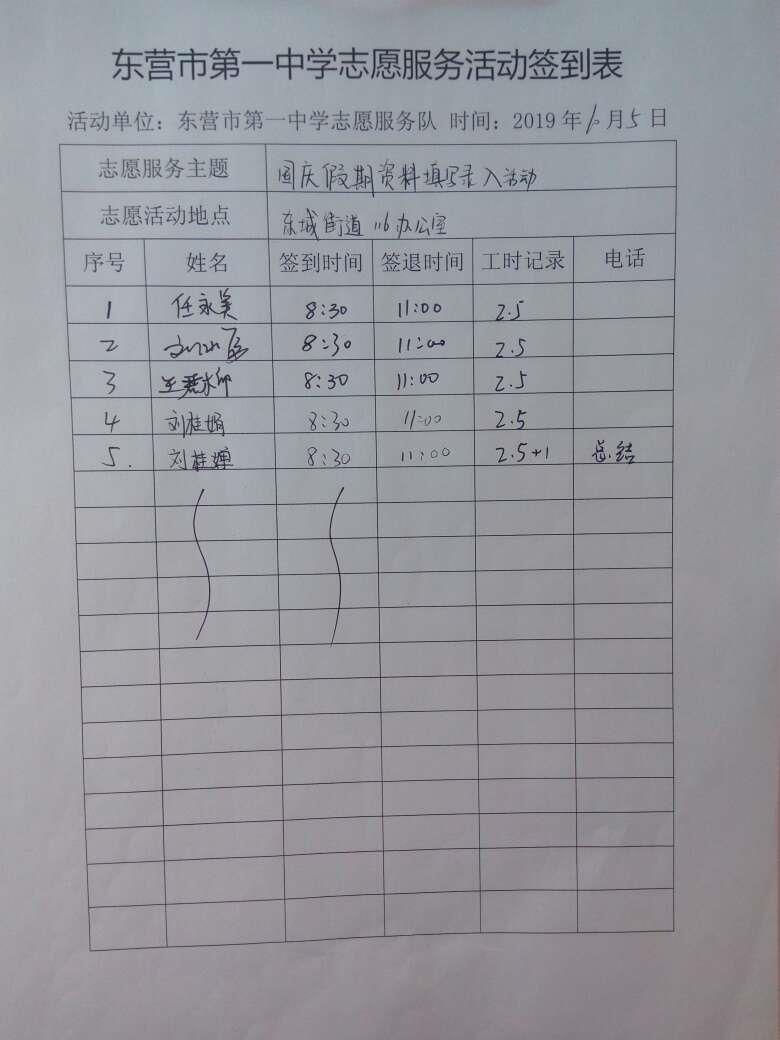 东营市第一中学志愿服务活动签到表
活动单位：东营市第一中学志愿服务队 时间：2019年10月5日
志愿服务主题 国庆假期资料填写录入活动
志愿活动地点 东城街道116办公室
序号 姓名 签到时间 签退时间 工时记录 电话
1 任永昊 8:30 11:00 2.5
2 8:30 11:00 2.5
3 8:30 11:00 2.5
4 刘桂娟 8:30 11:00 2.5
5. 刘桂婵 8:30 11:00 2.5+1 总结